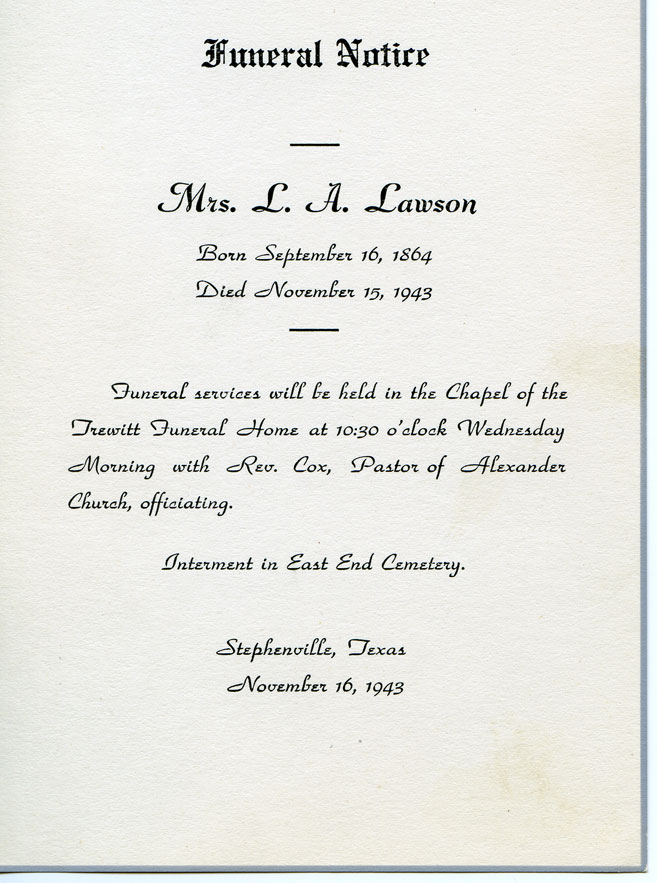 Funeral Notice
Mrs. L. A. Lawson
Born September 16, 1864
Died November 15, 1943
Funeral services will be held in the Chapel of the
Trewitt Funeral Home at 10:30 o'clock Wednesday
Morning with Rev. Cox, Pastor of Alexander
Church, officiating.
Interment in East End Cemetery.
Stephenville, Texas
November 16, 1943